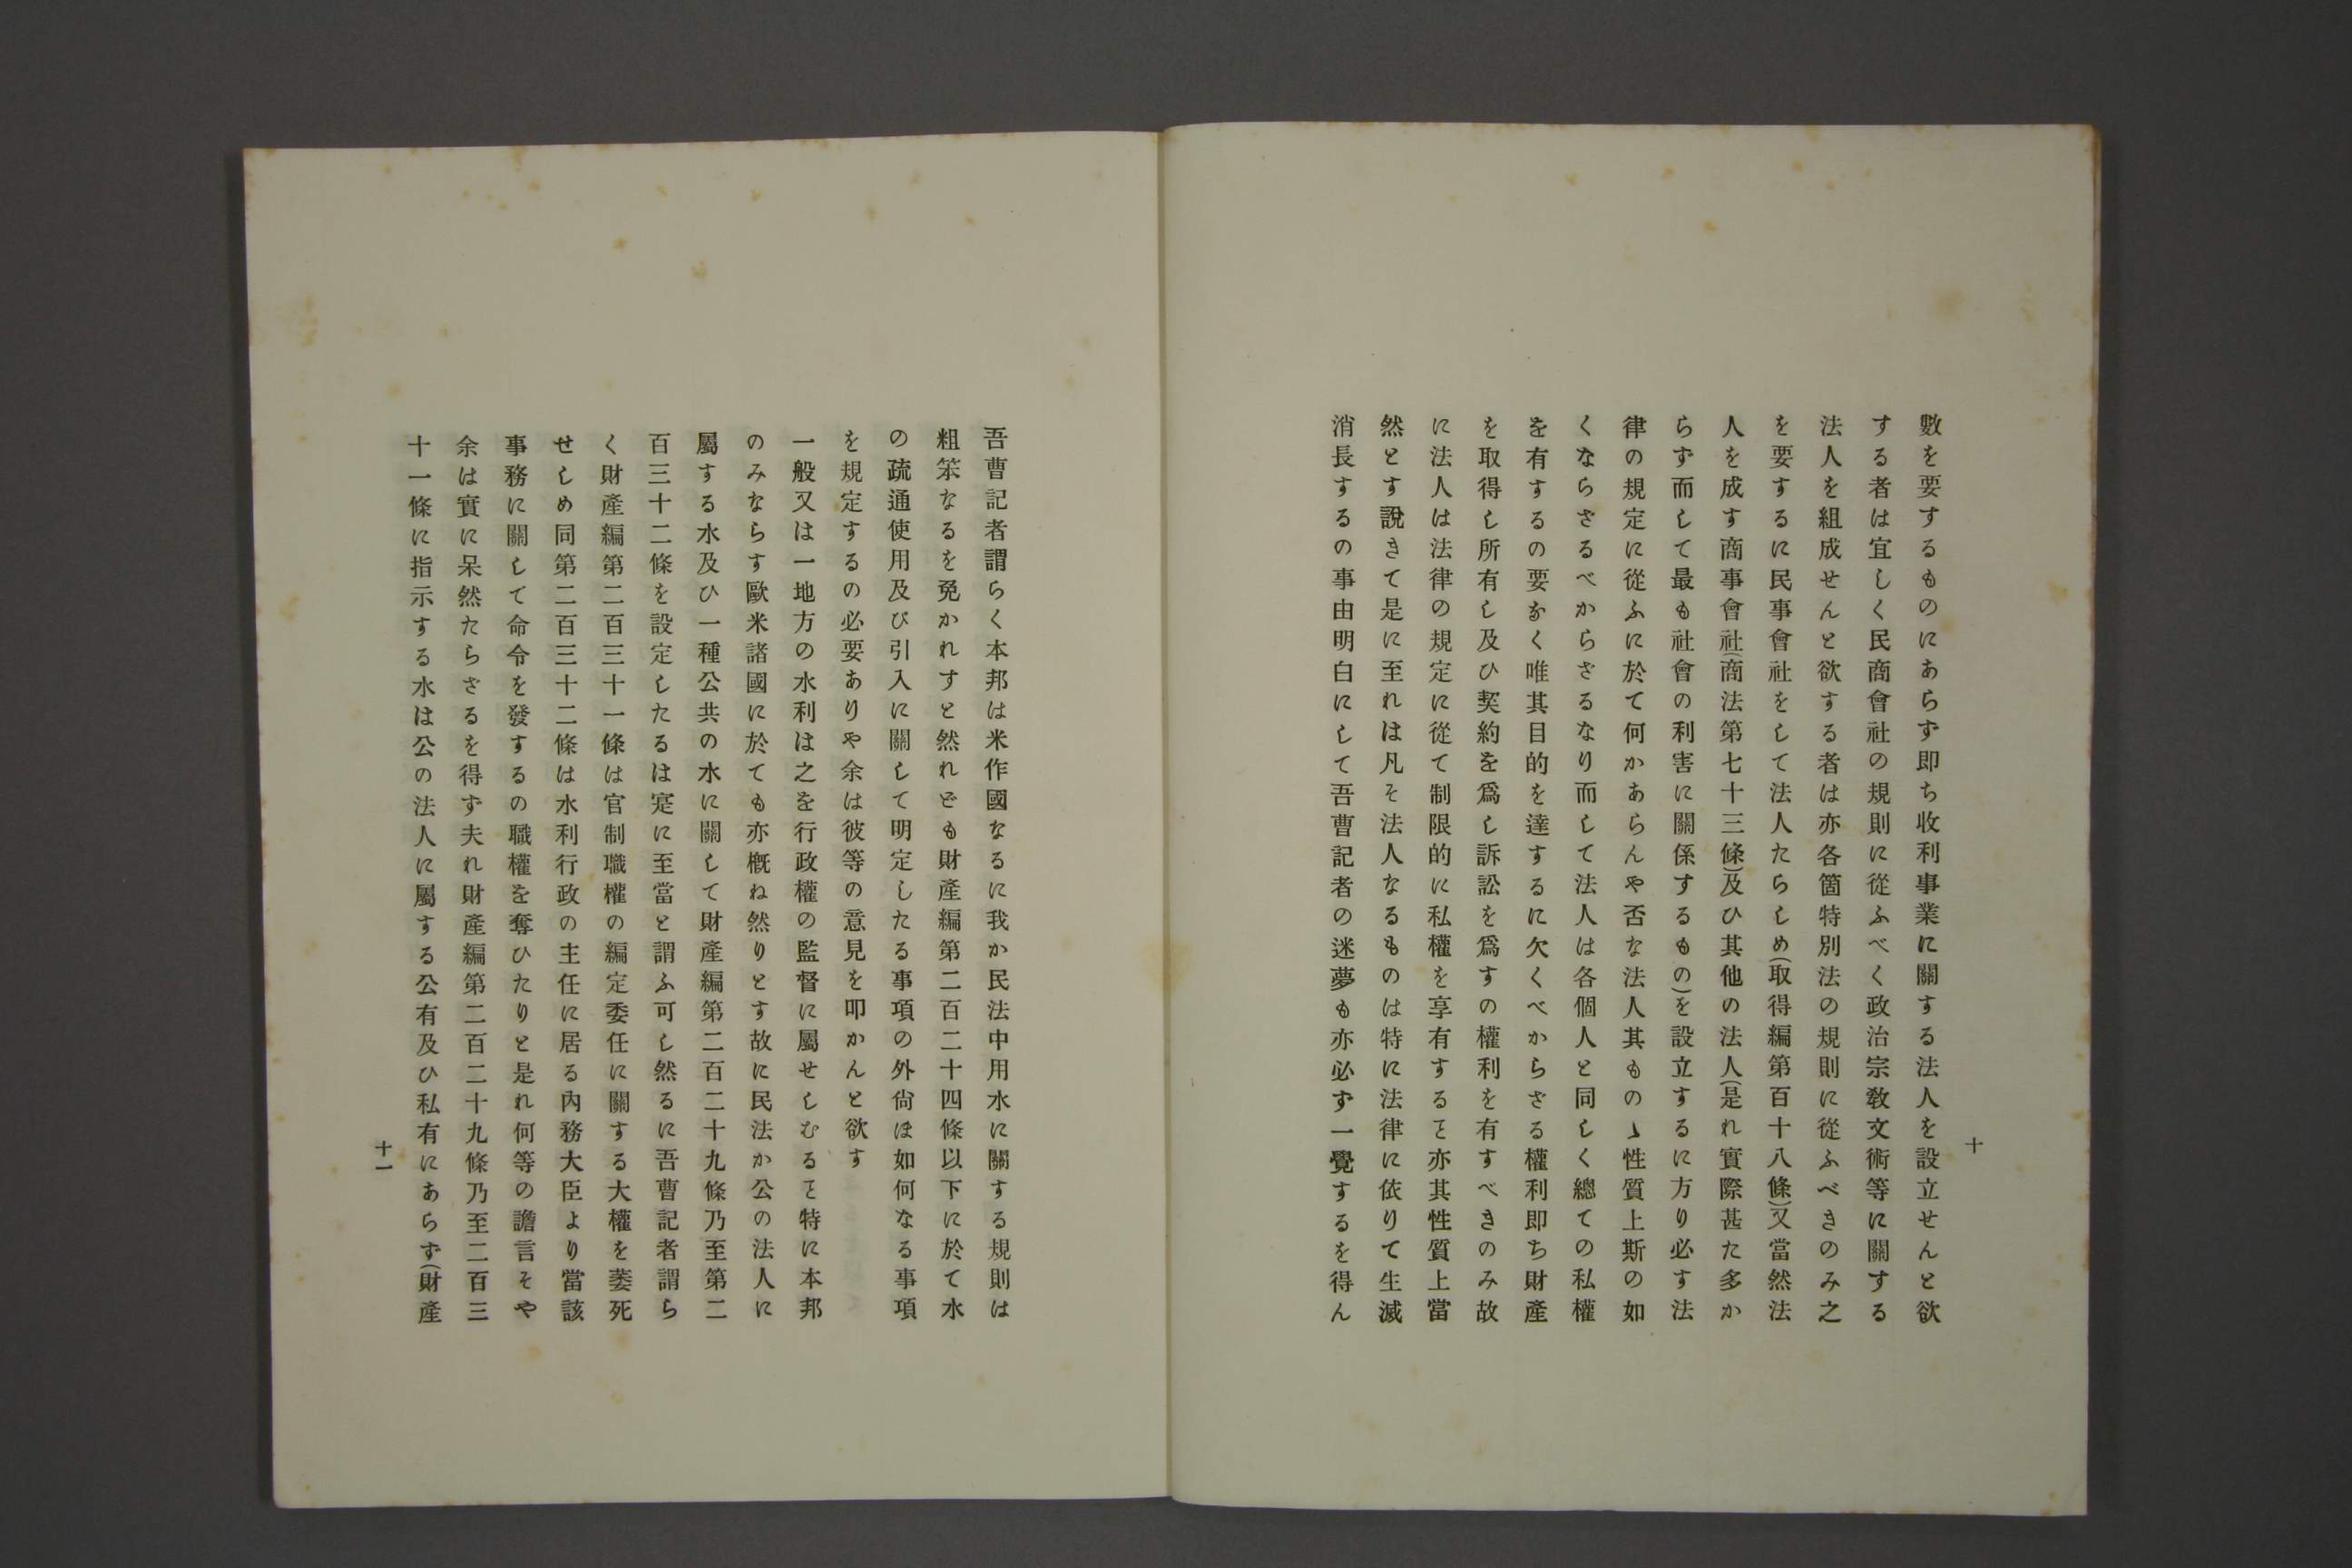 數を要するものにあらず即ち收利事業に關する法人を設立せんと欲
する者は宜しく民商會社の規則に從ふべく政治宗敎文術等に關する
法人を組成せんと欲する者は亦各箇特別法の規則に從ふべきのみ之
を要するに民事會社をして法人たらしめ(取得編第百十八條)又當然法
人を成す商事會社(商法第七十三條)及ひ其他の法人(是れ實際甚た多か
らず而して最も社會の利害に關係するもの)を設立するに方り必す法
律の規定に從ふに於て何かあらんや否な法人其ものゝ性質上斯の如
くならさるべからさるなり而して法人は各個人と同しく總ての私權
を有するの要なく唯其目的を達するに欠くべからさる權利即ち財產
を取得し所有し及ひ契約を爲し訴訟を爲すの權利を有すべきのみ故
に法人は法律の規定に從て制限的に私權を享有するヿ亦其性質上當
然とす說きて是に至れは凡そ法人なるものは特に法律に依りて生滅
消長するの事由明白にして吾曹記者の迷夢も亦必ず一覺するを得ん
十
吾曹記者謂らく本邦は米作國なるに我か民法中用水に關する規則は
粗笨なるを免かれすと然れども財產編第二百二十四條以下に於て水
の疏通使用及び引入に關して明定したる事項の外尙ほ如何なる事項
を規定するの必要ありや余は彼等の意見を叩かんと欲す
一般又は一地方の水利は之を行政權の監督に屬せしむるヿ特に本邦
のみならす歐米諸國に於ても亦槪ね然りとす故に民法か公の法人に
屬する水及ひ一種公共の水に關して財產編第二百二十九條乃至第二
百三十二條を設定したるは寔に至當と謂ふ可し然るに吾曹記者謂ら
く財產編第二百三十一條は官制職權の編定委任に關する大權を萎死
せしめ同第二百三十二條は水利行政の主任に居る內務大臣より當該
事務に關して命令を發するの職權を奪ひたりと是れ何等の譫言そや
余は實に呆然たらさるを得ず夫れ財產編第二百二十九條乃至二百三
十一條に指示する水は公の法人に屬する公有及ひ私有にあらず(財產
十一